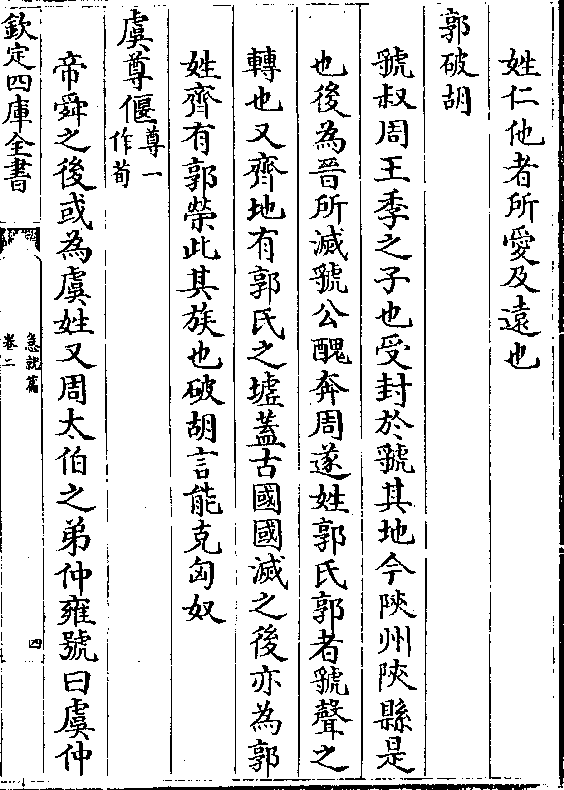 姓仁他者所愛及遠也
郭破胡
虢叔周王季之子也受封於虢其地今陜州陜縣是
也後為晉所滅虢公醜奔周遂姓郭氏郭者虢聲之
轉也又齊地有郭氏之墟蓋古國國滅之後亦為郭
姓齊有郭榮此其族也破胡言能克匈奴
虞尊偃尊一作荀
帝舜之後或為虞姓又周太伯之弟仲雍號曰虞仲
欽定四庫全書
急就篇
卷二
四